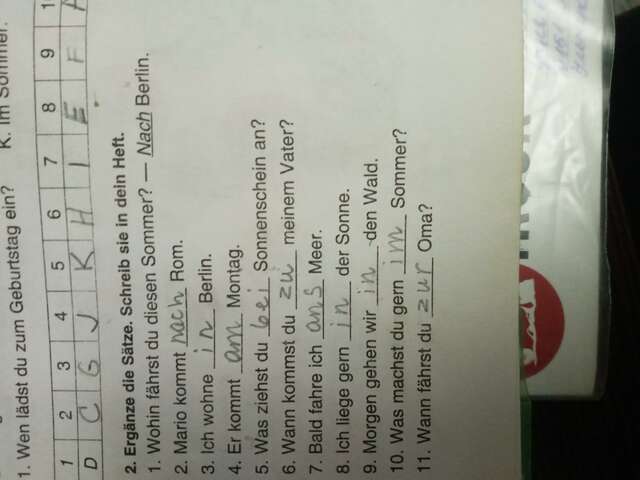 1. Wen lädst du zum Geburtstag ein? K. Im Sommer.
1 2 3 4 5 6 7 8 9
D C G J K H I E F
2. Ergänze die Sätze. Schreib sie in dein Heft.
1. Wohin fährst du diesen Sommer? — Nach Berlin.
2. Mario kommt nach Rom.
3. Ich wohne in Berlin.
4. Er kommt am Montag.
5. Was ziehst du bei Sonnenschein an?
6. Wann kommst du zu meinem Vater?
7. Bald fahre ich ans Meer.
8. Ich liege gern in der Sonne.
9. Morgen gehen wir in den Wald.
10. Was machst du gern im Sommer?
11. Wann fährst du zur Oma?